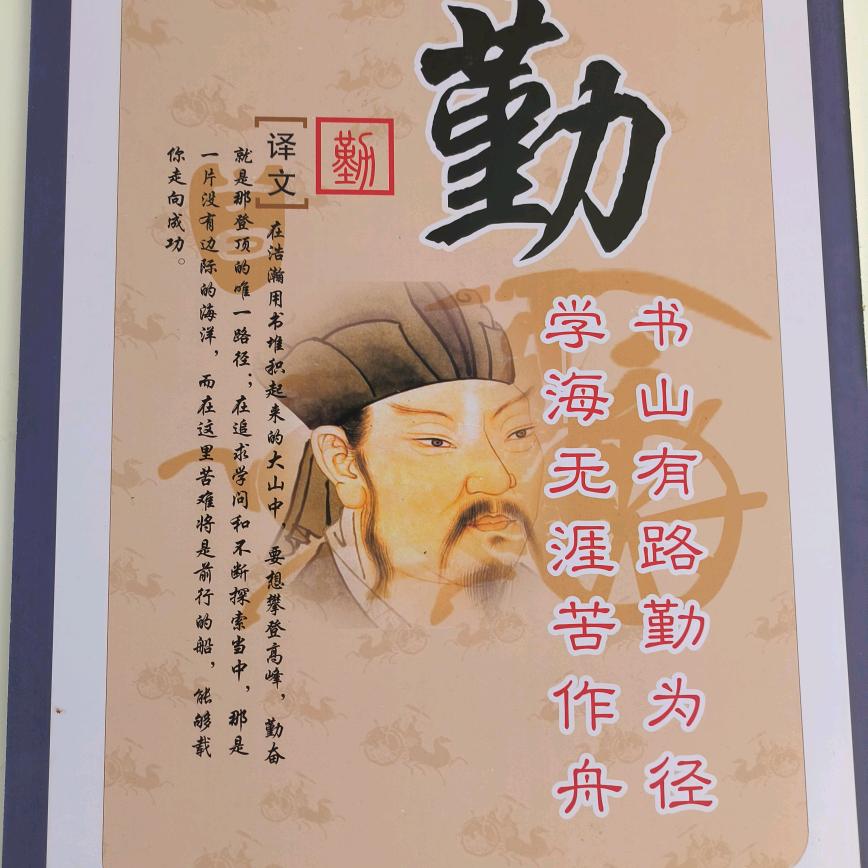 勤
书山有路勤为径
学海无涯苦作舟
勤
[译文]
在浩瀚用书堆积起来的大山中，要想攀登高峰，勤奋
就是那登顶的唯一路径；在追求学问和不断探索当中，那是
一片没有边际的海洋，而在这里苦难将是前行的船，能够载
你走向成功。